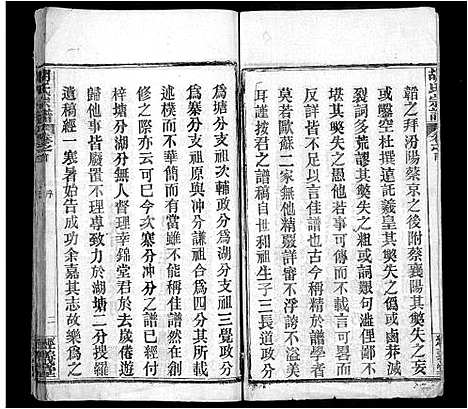 韜之拜汾陽蔡京之後附蔡襄陽其獘失之妄
或鑿空杜撰遠託羲皇其獘失之僞或鹵莾減
裂詞多荒謬其獘失之粗或詞艱而意淺鄙不
堪其獘失之愚他若此類不可枚言可畧而
反詳皆不可以言佳譜也古今稱精於譜學者
莫若歐蘇二家無他精覈詳審不浮誇不溢美
耳謹按君之譜稿自世和祖生子三長道政分
爲塘分支祖次輔政分爲湖分支祖三覺政分
爲寨分支祖原與冲分謙祖合爲四分其所載
述樸而不華簡而該可不謂能稱佳譜者乎創
修之際亦云可今次寨分冲分之譜已經付
梓塘分湖分無人督理幸錦堂君於去歲倦遊
歸他事皆廢置不理專致力於湖塘二分搜羅
遺稿經一寒暑始告成功余嘉其志故樂爲之
胡氏宗譜
卷之首
序
二
經義堂